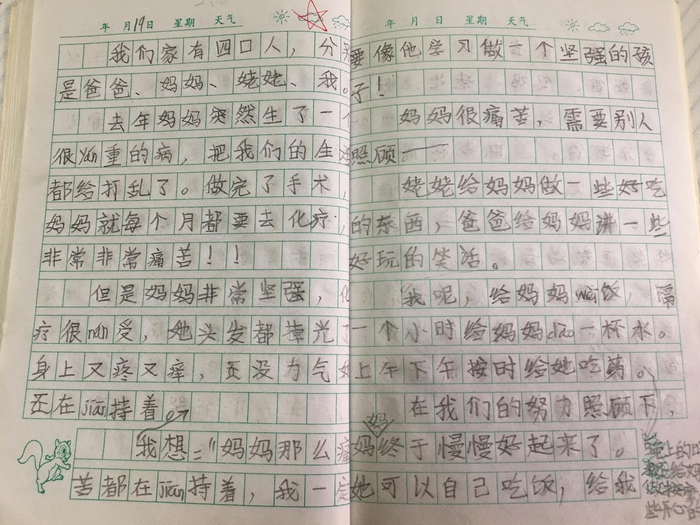 年 月19日 星期 天气
我们家有四口人，分
是爸爸、妈妈、姥姥、我。
去年妈妈突然生了一个
很yán重的病，把我们的生
都给打乱了。做完了手术，
妈妈就每个月都要去化疗，
非常非常痛苦！！
但是妈妈非常坚强，化
疗很nán受，她头发都掉光了
身上又疼又痒，还没力气
还在jiān持着。
我想："妈妈那么痛
苦都在jiān持着，我一定
年 月 日 星期 天气
要像他学习做一个坚强的孩
子！
妈妈很痛苦，需要别人
照顾
姥姥给妈妈做一些好吃
的东西，爸爸给妈妈讲一些
好玩的笑话。
我呢，给妈妈wèi饭，隔
一个小时给妈妈dào一杯水。
上午下午按时给她吃药。
在我们的努力照顾下，
妈
妈终于慢慢好起来了。
她可以自己吃饭，给我